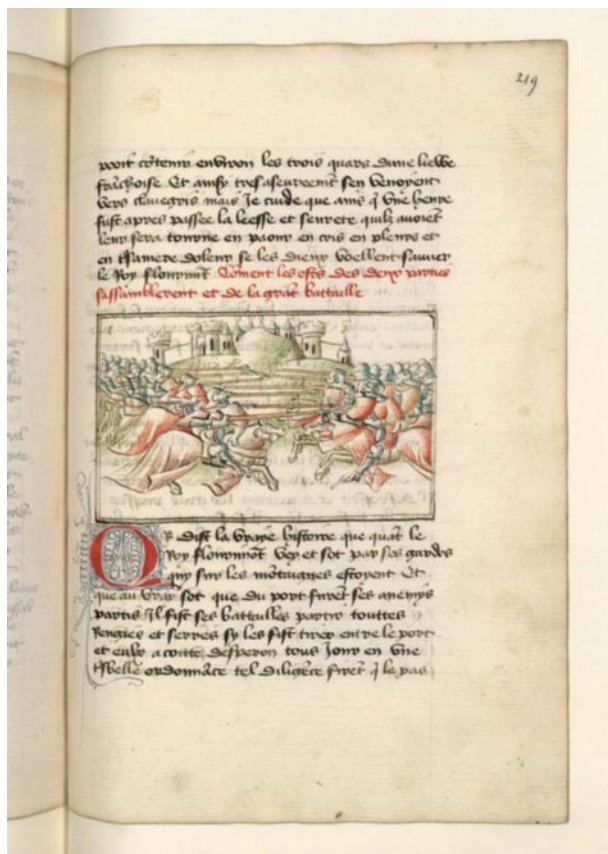 219
pooit cõtenir environ les trois quars dune liewe
frãchoise Et ainsy tres aseurement sen venoyent
vers clavegris mais Je cuide que ains q̃ Une heure
fust apres passee la leesse et seurete quilz avoiẽt
leur sera tourne en paour en cris en pleurs et
en amere doleur se les dieux voellent sauver
le Roy flourimõt Cõment les osts des deux parties
sassamblerent et de la grãt battaille
OR dist la Vraye histoire que quãt le
Roy flourimõt Vey et sot par ses gardes
quy sur les mõtaignes estoyent Et
que au Vray sot que du port furẽt ses anemys
partis Il fist ses battailles partir touttes
Rengies et serrees sy les fist tirer entre le port
et eulx a coitte desperon tous Jour en Une
tsbelle ordonnãce tel diligẽce firẽt q̃ le pas